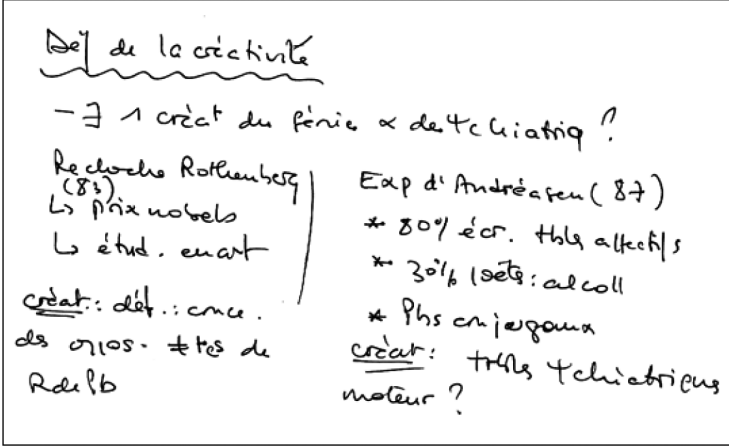 Déf de la créativité
- ∃ 1 créat du génie ∝ de Ψchiatriq ?
Recherche Rothenberg
(83)
↳ Prix nobels
↳ étud. en art
créat.: déf.: conce.
ds
≠tes de
R de Pb
Exp d'Andréasen (87)
* 80% écr. tbls affectifs
* 30% : alcoll
* Pbs conjugaux
créat: trbls Ψchiatriques
moteur ?